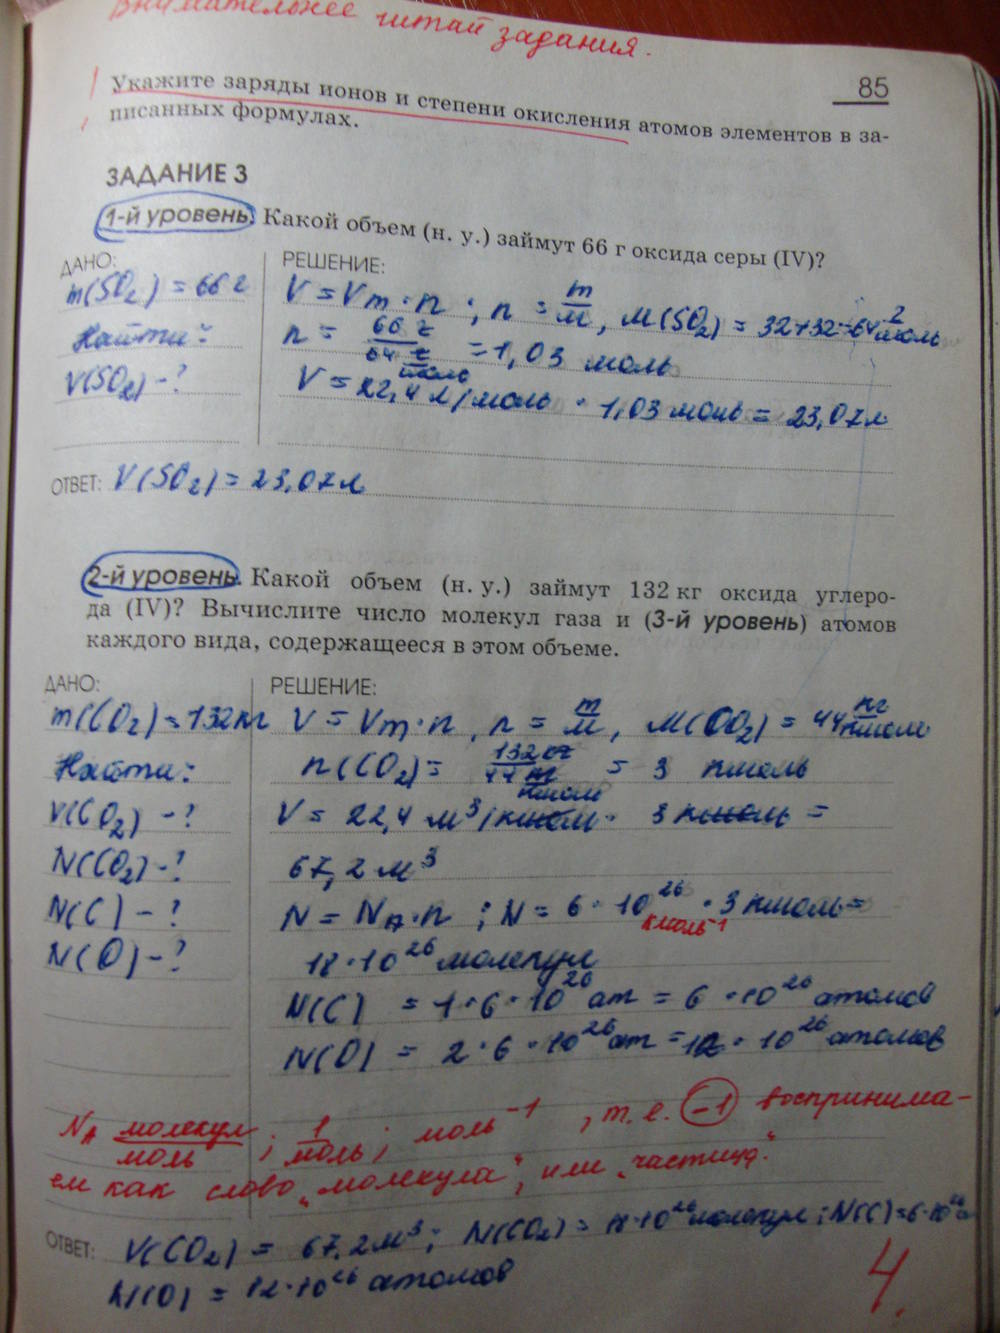 Внимательнее читай задания.
85
Укажите заряды ионов и степени окисления атомов элементов в за-
писанных формулах.
ЗАДАНИЕ 3
1-й уровень. Какой объем (н. у.) займут 66 г оксида серы (IV)?
ДАНО: РЕШЕНИЕ:
m(SO₂) = 66 г V = Vm · n ; n = m/M, M(SO₂) = 32+32=64 г/моль
Найти: n = 66 г / 64 г/моль = 1,03 моль
V(SO₂) - ? V = 22,4 л/моль · 1,03 моль = 23,07 л
ОТВЕТ: V(SO₂) = 23,07 л
2-й уровень. Какой объем (н. у.) займут 132 кг оксида углеро-
да (IV)? Вычислите число молекул газа и (3-й уровень) атомов
каждого вида, содержащееся в этом объеме.
ДАНО: РЕШЕНИЕ:
m(CO₂) = 132 кг V = Vm · n, n = m/M, M(CO₂) = 44 кг/кмоль
Найти: n(CO₂) = 132 кг / 44 кг/кмоль = 3 кмоль
V(CO₂) - ? V = 22,4 м³/кмоль · 3 кмоль =
N(CO₂) - ? 67,2 м³
N(C) - ? N = NA · n ; N = 6 · 10²⁶ кмоль⁻¹ · 3 кмоль =
N(O) - ? 18 · 10²⁶ молекул
N(C) = 1 · 6 · 10²⁶ ат = 6 · 10²⁶ атомов
N(O) = 2 · 6 · 10²⁶ ат = 12 · 10²⁶ атомов
NA молекул/моль ; 1/моль ; моль⁻¹, т. е. -1 воспринима-
ем как слово „молекула“, или „частица“.
ОТВЕТ: V(CO₂) = 67,2 м³; N(CO₂) = 18·10²⁶ молекул; N(C) = 6·10²⁶
N(O) = 12·10²⁶ атомов
4.